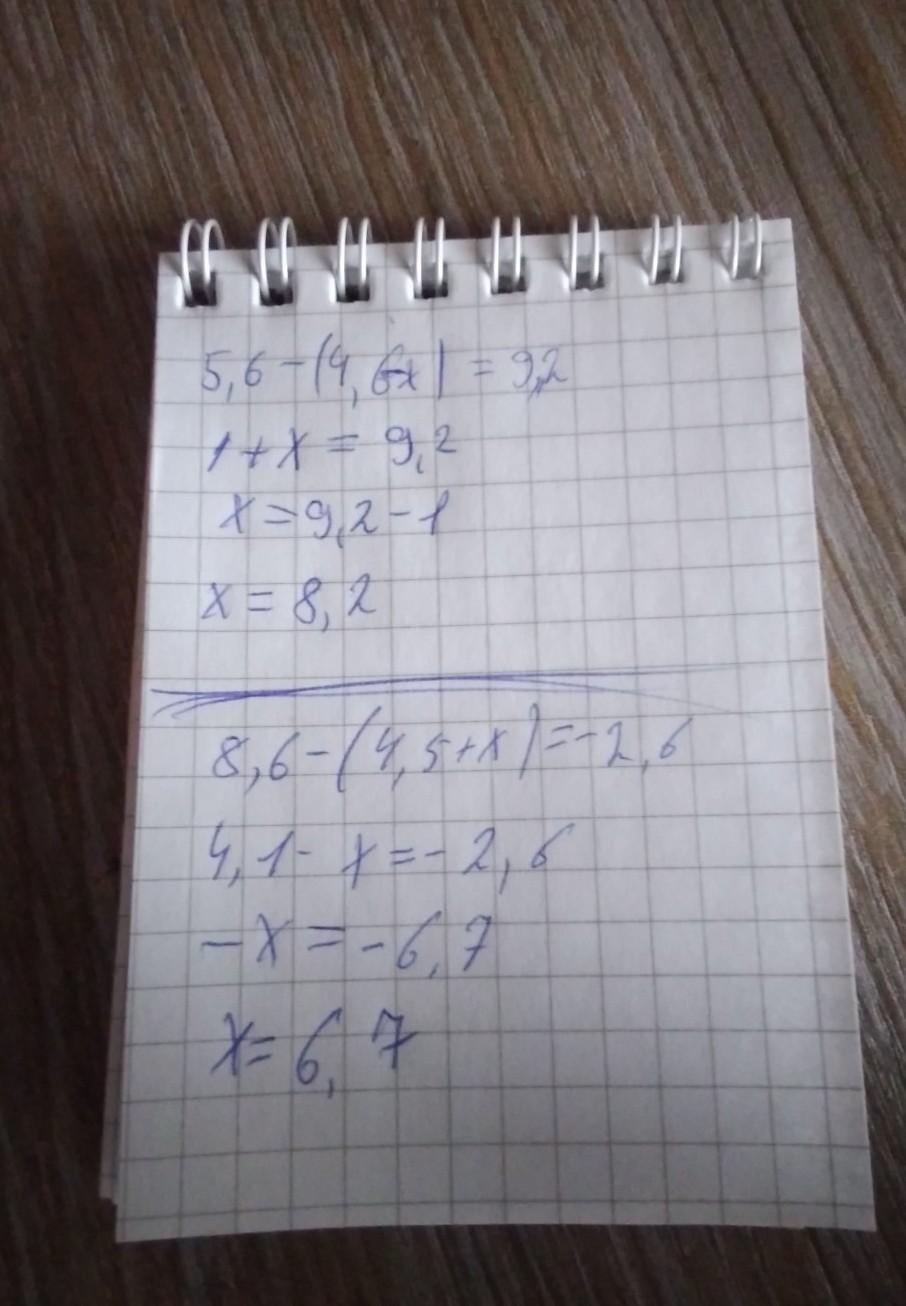 5,6-(4,6-x)=9,2
1+x=9,2
x=9,2-1
x=8,2
8,6-(4,5+x)=-2,6
4,1-x=-2,6
-x=-6,7
x=6,7